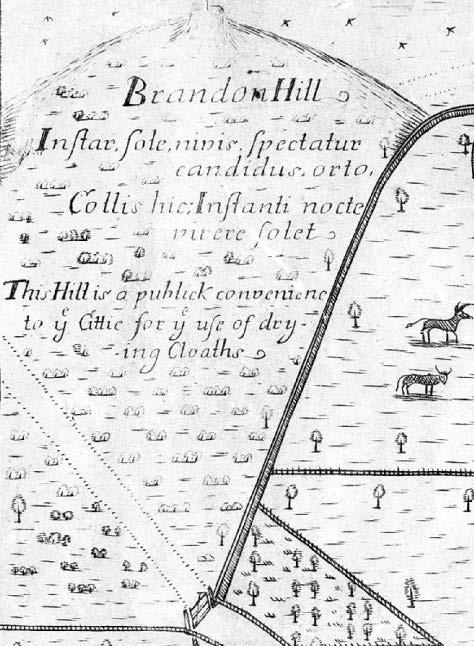 Brandon Hill
Inſtar, ſole, nivis, ſpectatur
candidus, orto,
Collis hic; Inſtanti nocte
virere ſolet
This Hill is a publick convenienc
to yͤ Cittie for yͤ uſe of dry-
-ing Cloaths